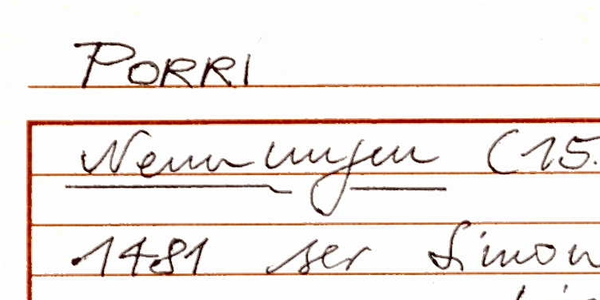 PORRI
Nennungen (15.
1481 ser Simon